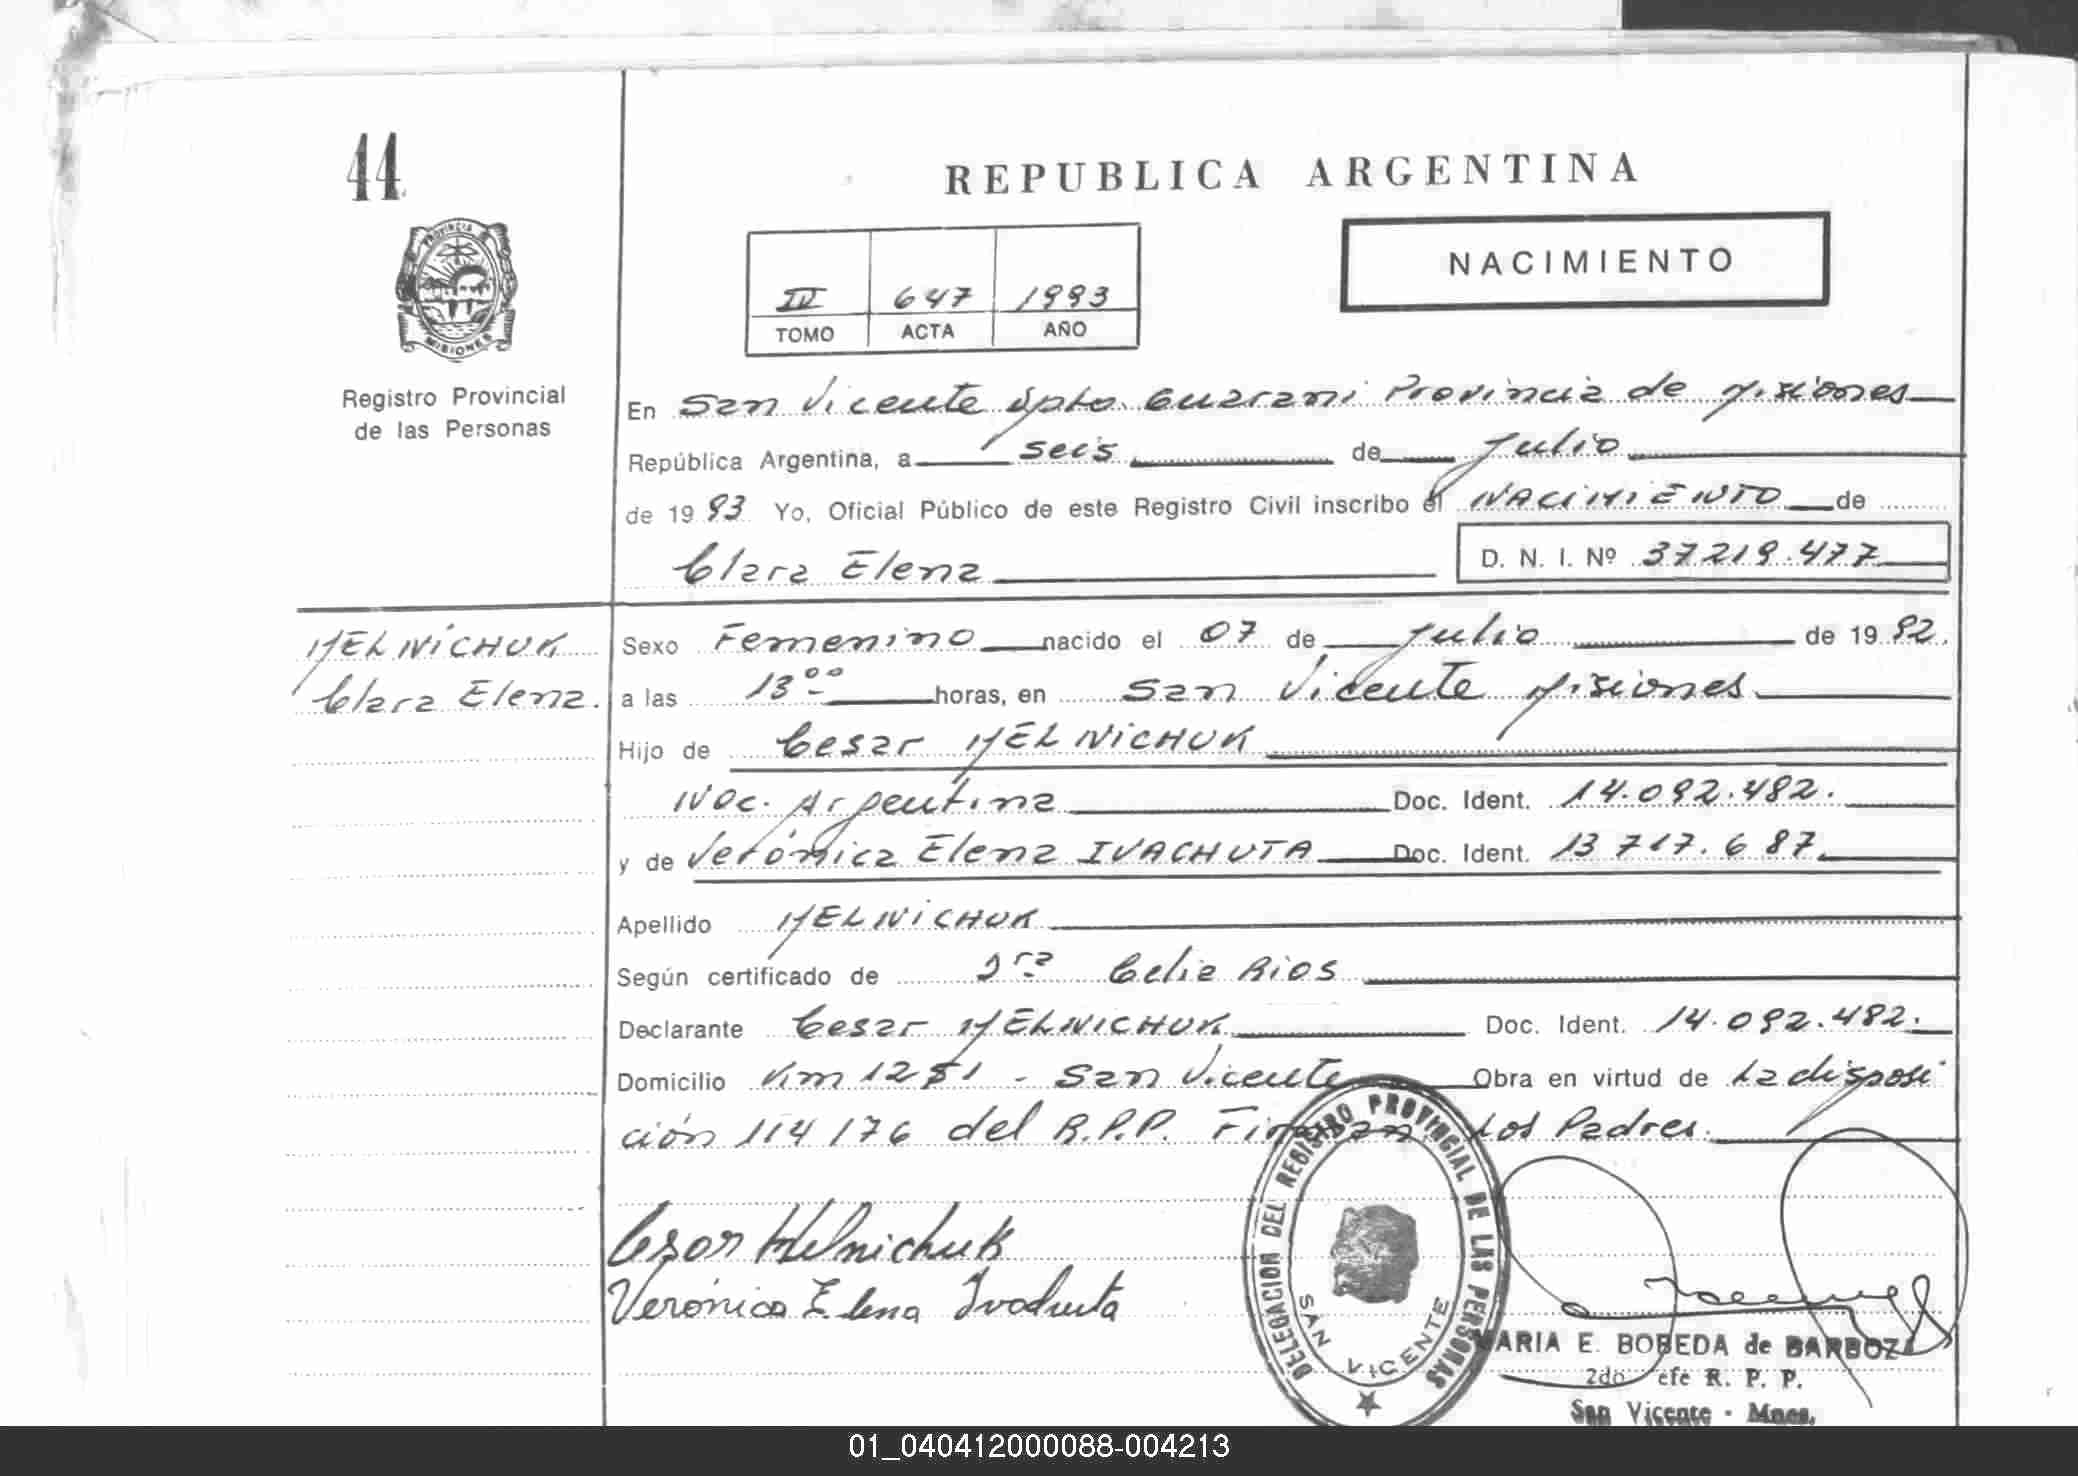 44
REPUBLICA ARGENTINA
NACIMIENTO
PROVINCIA
MISIONES
IV 647 1993
TOMO ACTA AÑO
Registro Provincial
de las Personas
En San Vicente Dpto. Guarani Provincia de Misiones
República Argentina, a seis de Julio
de 1993 Yo, Oficial Público de este Registro Civil inscribo el NACIMIENTO de
Clara Elena D. N. I. Nº 37219.477
MELNICHUK
Clara Elena.
Sexo Femenino nacido el 07 de Julio de 1992.
a las 13 00 horas, en San Vicente Misiones
Hijo de Cesar MELNICHUK
Nac. Argentina Doc. Ident. 14.092.482.
y de Verónica Elena IVACHUTA Doc. Ident. 13 717.687.
Apellido MELNICHUK
Según certificado de Dra Celia Rios
Declarante Cesar MELNICHUK Doc. Ident. 14.092.482.
Domicilio Km 1281 - San Vicente Obra en virtud de La disposi
ción 114/76 del R.P.P. Firman Los Padres.
Cesar Melnichuk
Verónica Elena Ivachuta
DELEGACION DEL REGISTRO PROVINCIAL DE LAS PERSONAS
SAN VICENTE
MARIA E. BOBEDA de BARBOZA
2do Jefe R. P. P.
San Vicente - Mnes.
01_040412000088-004213